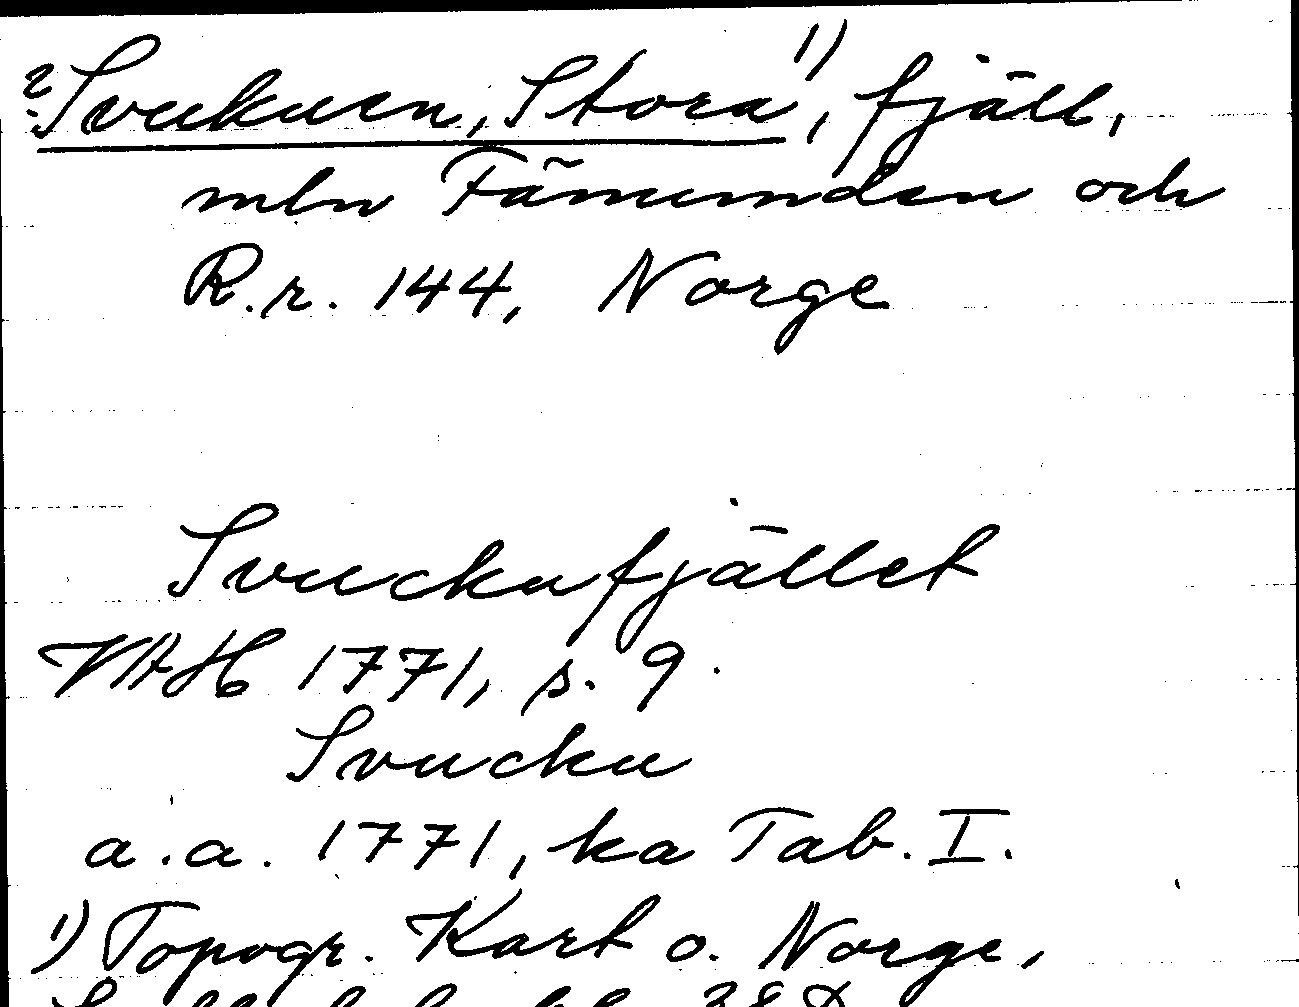 ? Svukuen, Stora 1), fjäll,
mln Fämunden och
R.r. 144, Norge
Svuckufjället
VAH 1771, s. 9.
Svucku
a.a. 1771, ka Tab. I.
1) Topogr. Kart o. Norge,